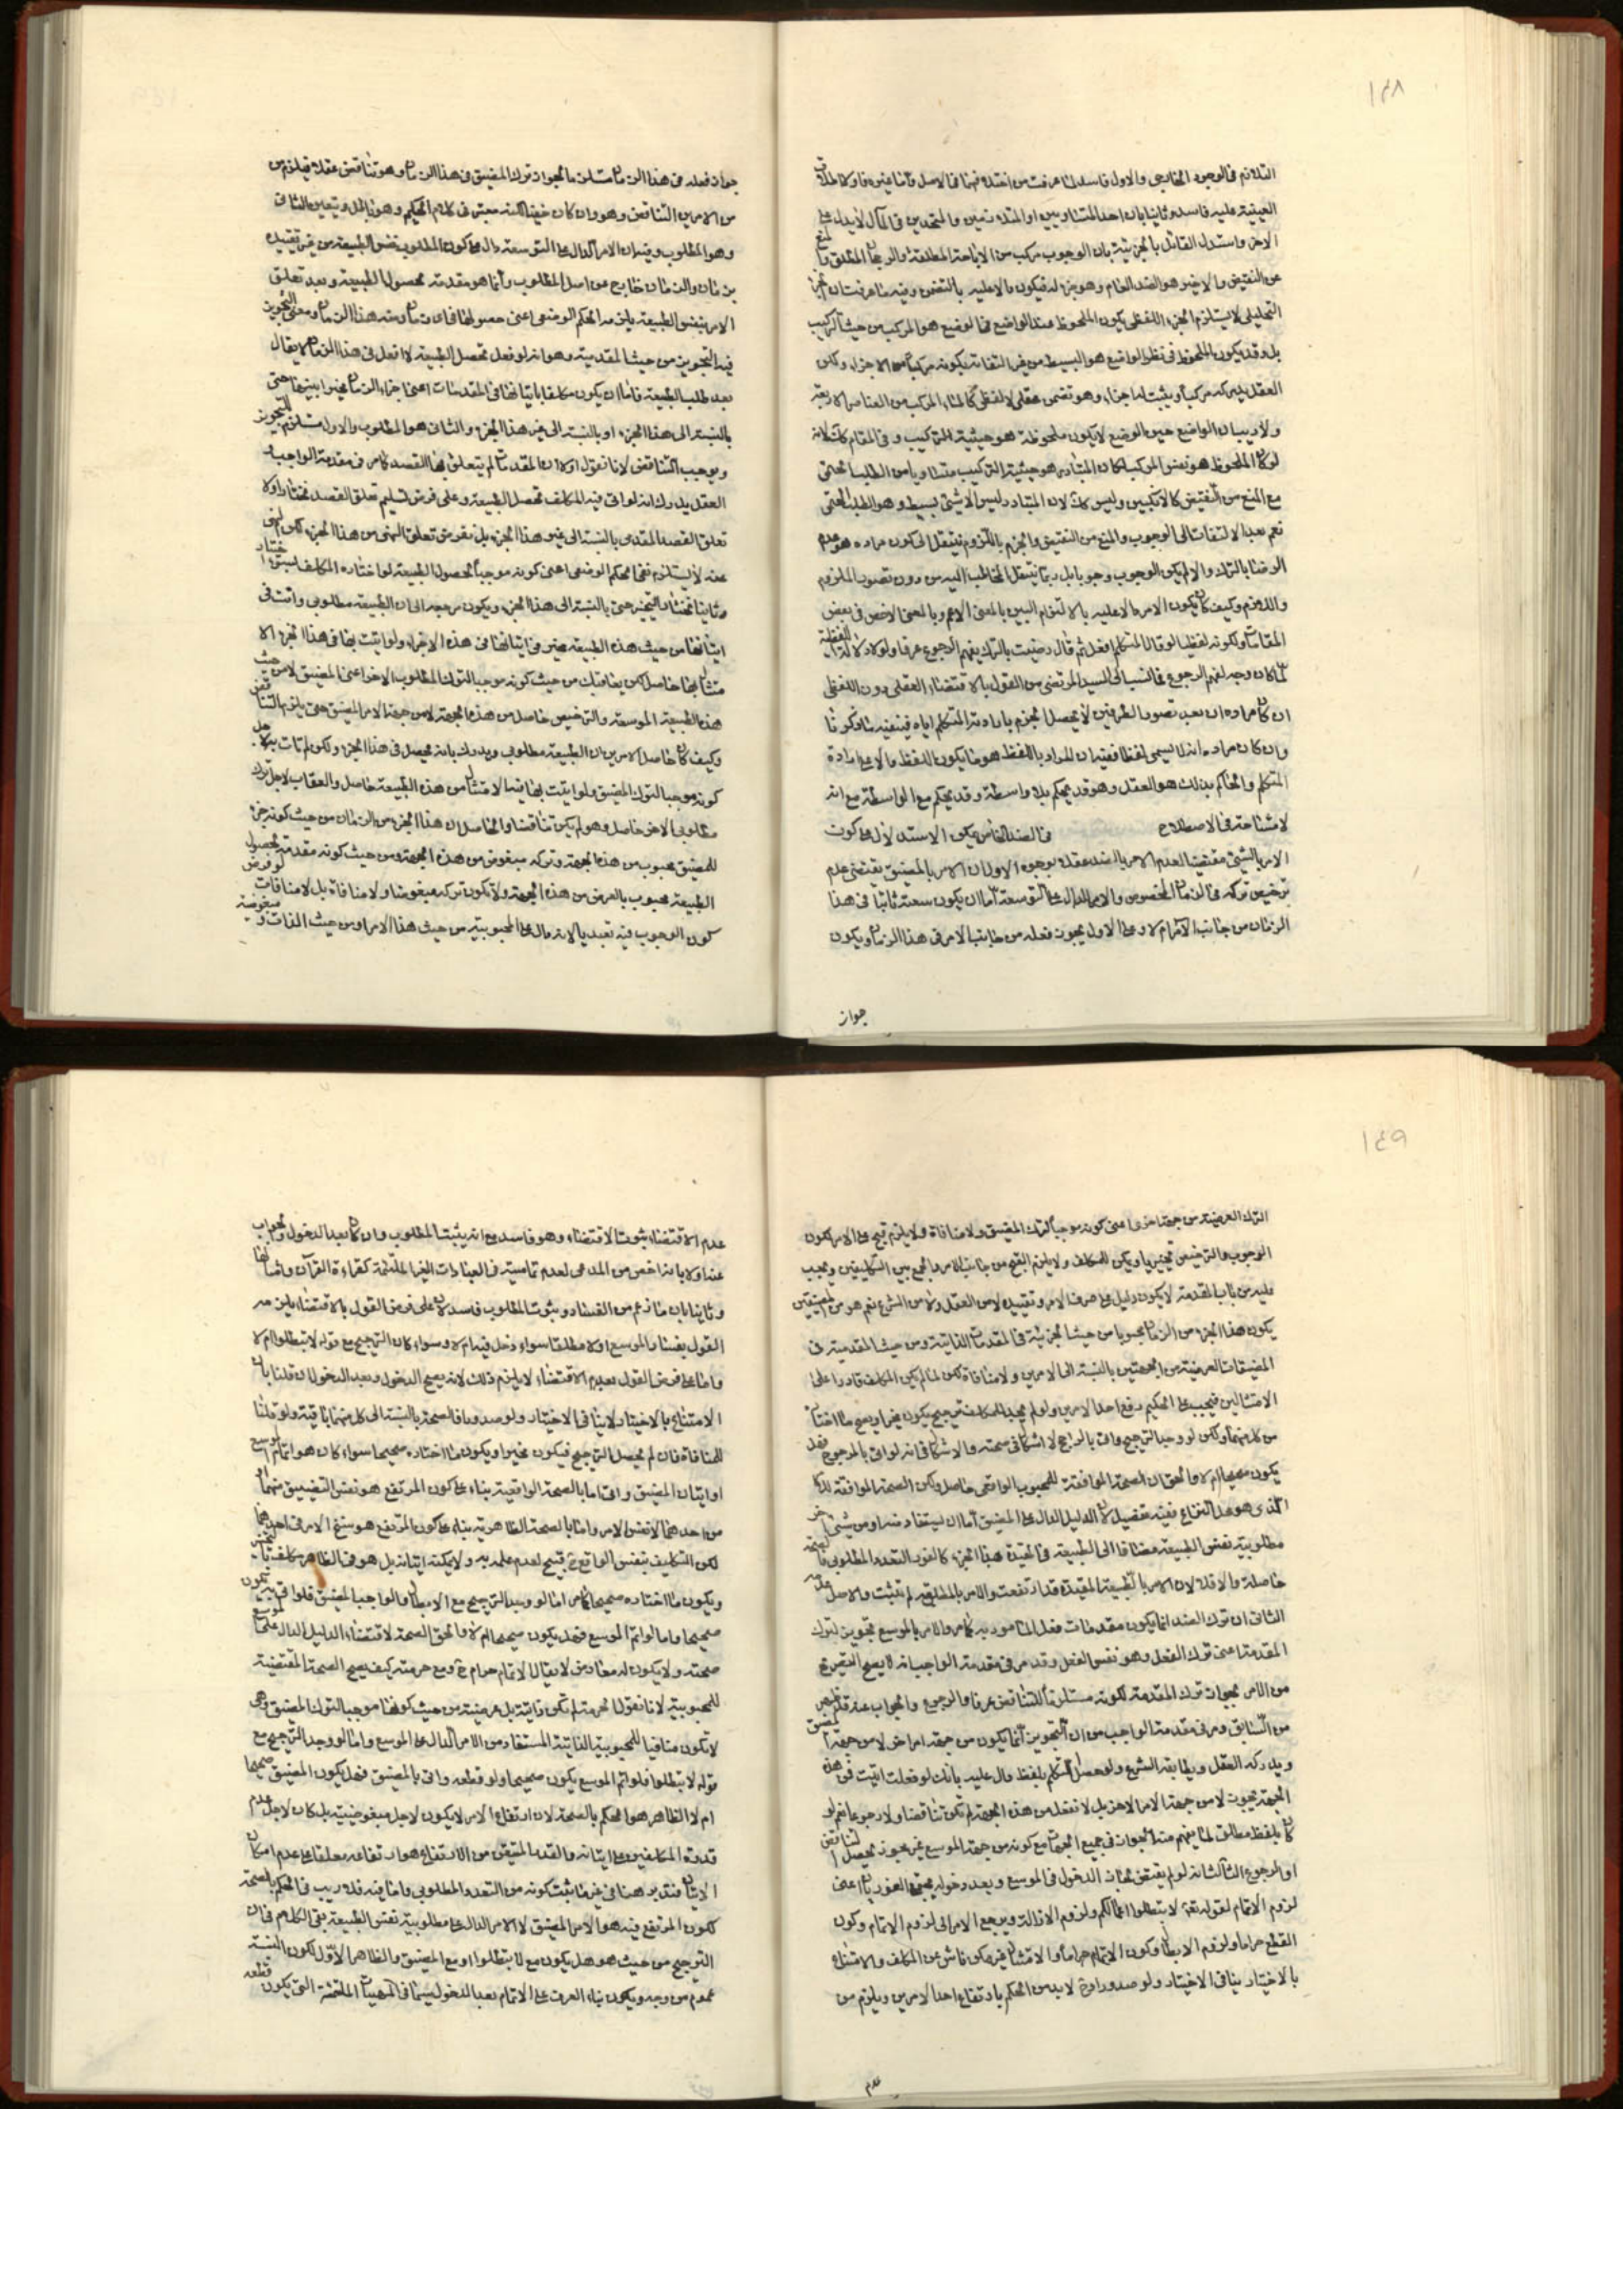 ١٤٨
التلازم فى الوجود الخارجى والاول فاسد لما عرفت من اختلافهما فى الاصل واما غيره فاوكالملاق
العينية عليه فاسد وثانيا بان احد المتساويين او المتلازمين والمتحدين فى المآل لا يدل على
الاخر واستدل القائل بالجزئية بان الوجوب مركب من الاباحة المطلقة والرجحان المطلق والمنع
عن النقيض والاخير هو الضد العام وهو جزء له فيكون دالا عليه بالتضمن وفيه ما عرفت ان الجزء
التحليلى لا يستلزم الجزء اللفظى بكون الملحوظ عند الواضع فى الوضع هو المركب من حيث التركيب
بل وقد يكون الملحوظ فى نظر الواضع هو البسيط من غير التفات بكونه مركبا من الاجزاء ولكن
العقل يدركه مركبا ويثبت له اجزاء وهو تضمن عقلى لا لفظى كالماء المركب من العناصر الاربعة
ولا ريب ان الواضع حين الوضع لا يكون ملحوظه هو حيثية التركيب وفى المقام كذلك لانه
لو كان الملحوظ هو نفس المركب لكان المتبادر هو حيثية التركيب من الطلب الحتمى
مع المنع من النقيض كالانكبين وليس كذلك لان المتبادر ليس الا شئ بسيط وهو الطلب الحتمى
نعم بعد الالتفات الى الوجوب والمنع من النقيض والجزم باللزوم ينتقل الى كون مراده هو عدم
الرضا بالترك والا لم يكن الوجوب وجوبا بل ربما ينتقل المخاطب اليه من دون تصور الملزوم
واللازم وكيف كان يكون الامر دالا عليه بالالتزام البين بالمعنى الاعم وبالمعنى الاخص فى بعض
المقامات ولكونه لفظيا لو قال المتكلم افعل ثم قال رضيت بالترك يفهم الرجوع عرفا ولو لا دلالة اللفظية
لما كان وجه لفهم الرجوع فما نسب الى السيد المرتضى من القول بالاقتضاء العقلى دون اللفظى
ان كان مراده ان بعد تصور الطرفين لا يحصل الجزم بارادة المتكلم اياه فينفيه ما ذكرنا
وان كان مراده انه لا يسمى لفظا ففيه ان المراد باللفظ هو ما يكون اللفظ دالا على ارادة
المتكلم والحاكم بذلك هو العقل وهو قد يحكم بلا واسطة وقد يحكم مع الواسطة مع انه
لا مشاحة فى الاصطلاح فى الضد الخاص يمكن الاستدلال على كون
الامر بالشئ مقتضيا لعدم الامر بالضد عقلا بوجوه الاول ان الامر بالمضيق يقتضى عدم
ترخيص تركه فى الزمان المخصوص والامر الدال على التوسعة اما ان يكون سعته ثابتا فى هذا
الزمان من جانب الآمر ام لا وعلى الاول يجوز فعله من جانب الامر فى هذا الزمان ويكون
جواز
جواز فعله فى هذا الزمان مستلزما لجواز ترك المضيق فى هذا الزمان وهو تناقض عقلا فيلزم من
من الامرين التناقض وهو وان كان خفيا لكنه معتبر فى كلام الحكيم وهو باطل ويتعين الثانى
وهو المطلوب وفيه ان الامر الدال على التوسعة دال على كون المطلوب نفس الطبيعة من غير تقييد
بزمان والزمان خارج عن اصل المطلوب وانما هو مقدمة لحصول الطبيعة وبعد تعلق
الامر بنفس الطبيعة يلزمه الحكم الوضعى اعنى حصولها فى اى زمان ومنه هذا الزمان ومعنى التجويز
فيه التجويز من حيث المقدمية وهو انه لو فعل تحصل الطبيعة لا افعل فى هذا الزمان لا يقال
بعد طلب الطبيعة فاما ان يكون مكلفا باتيانها فى المقدمات اعنى اجزاء الزمان مخيرا بينها حتى
بالنسبة الى هذا الجزء او بالنسبة الى غير هذا الجزء والثانى هو المطلوب والاول مستلزم للتجويز
ويوجب التناقض لانا نقول اولا ان المقدمات لم يتعلق بها القصد كما مر فى مقدمة الواجب
العقل يدرك انه لو اتى فيه المكلف تحصل الطبيعة وعلى فرض تسليم تعلق القصد نختار اولا
تعلق القصد المقدمى بالنسبة الى غير هذا الجزء بل نفرض تعلق النهى من هذا الجزء لكن النهى
عنه لا يستلزم نفى الحكم الوضعى اعنى كونه موجبا لحصول الطبيعة لو اختاره المكلف
وثانيا نختار التخيير حتى بالنسبة الى هذا الجزء ويكون مرجعه الى ان الطبيعة مطلوبى وانت فى
اتيانها من حيث هذه الطبيعة مخير فى اتيانها فى هذه الاجزاء ولو اتيت بها فى هذا الجزء الامـ
ـتثال بها حاصل لكن يعاقبك من حيث كونه موجبا لترك المطلوب الاخر اعنى المضيق لا من حيث
هذه الطبيعة الموسعة والترخيص حاصل من هذه الجهة لا من جهة الامر المضيق حتى يلزم التناقض
وكيف كان حاصل الامرين ان الطبيعة مطلوبى ويدرك بانه يحصل فى هذا الجزء ولكن لم تأت به لاجل
كونه موجبا لترك المضيق ولو اتيت بها فيه الامتثال من هذه الطبيعة حاصل والعقاب لاجل ترك
مطلوبى الاخر حاصل وهو لم يكن تناقضا والحاصل ان هذا الجزء من الزمان من حيث كونه جزء
للمضيق محبوب من هذه الجهة وتركه مبغوض من هذه الجهة ومن حيث كونه مقدمة لحصول
الطبيعة محبوب بالعرض من هذه الجهة ولا يكون تركه مبغوضا ولا منافاة بل لا منافات لو فرض
كون الوجوب فيه تعبديا لانه دال على المحبوبية من حيث هذا الامر او من حيث الذات ومبغوضية
١٤٩
الترك العرضية من جهة اخرى اعنى كونه موجبا لترك المضيق ولا منافاة ولا يلزم قبح على الامر لكون
الوجوب والترخيص تخييريا ويمكن للمكلف ولا يلزم القبح من جانب الامر والجمع بين التكليفين ويجب
عليه من باب المقدمة لا يكون دليل على صرف الامر وتقييده لا من العقل ولا من الشرع نعم هو من المضيقين
يكون هذا الجزء من الزمان محبوبا من حيث الجزئية فى المقدمات الذاتية ومن حيث المقدمية فى
المضيقات العرضية من الجهتين بالنسبة الى الامرين ولا منافاة لكن لما لم يكن المكلف قادرا على
الامتثالين فيجب على الحكيم رفع احد الامرين ولو لم يجد المكلف ترجيح يكون مخيرا ويصح ما اختار
من كل منهما ولكن لو وجد الترجيح واتى بالراجح لا اشكال فى صحته والاشكال فى انه لو اتى بالمرجوح فهل
يكون صحيحا ام لا والحق ان الصحة الموافقة للمحبوب الواقعى حاصل ولكن الصحة الموافقة للامر
الذى هو محل النزاع ففيه تفصيل لان الدليل الدال على المضيق اما ان يستفاد منه او من شئ اخر
مطلوبية نفس الطبيعة مضافا الى الطبيعة فى المقيدة بهذا الجزء كالفور التعدد المطلوبى فالصحة
حاصلة والا فلا لان الامر بالطبيعة المقيدة قد ارتفعت والامر بالمطلق لم يثبت والاصل عدمه
الثانى ان ترك الضد انما يكون مقدمات فعل المأمور به كما مر والامر بالموسع تجويز لترك
المقدمة اعنى ترك الفعل وهو نفس الفعل وقد مر فى مقدمة الواجب انه لا يصح التصريح
من الآمر بجواز ترك المقدمة لكونه مستلزما للتناقض عرفا والرجوع والجواب عنه قد ظهر
من السابق ومر فى مقدمة الواجب من ان التجويز انما يكون من جهة امر اخر لا من جهة المضيق
ويدركه العقل ويطابقه الشرع ولو حصل المتكلم بلفظ دال عليه بانك لو فعلت اتيت فى هذه
الجهة تجوزت لا من جهة الامر الاخر بل لا تفعل من هذه الجهة لم يكن تناقضا ولا رجوعا نعم لو
كان بلفظ مطلق لما يفهم منه الجواز فى جميع الجهات مع كونه من جهة الموسع غير مجوز يحصل التناقض
او الرجوع الثالث انه لو لم يقتض لجاز الدخول فى الموسع وبعد دخوله يجتمع الفوريان اعنى
لزوم الاتمام لقوله تعالى لا تبطلوا اعمالكم ولزوم الازالة ويرجع الامر الى لزوم الاتمام وكون
القطع حراما ولزوم الابطال وكون الاتمام حراما والامتثال غير ممكن ناش عن المكلف والامتناع
بالاختيار ينافى الاختيار ولو صدورا فح لا بد من الحكم بارتفاع احد الامرين ويلزم من
عدم
عدم الاقتضاء ثبوت الاقتضاء وهو فاسد مع انه يثبت المطلوب وان كان بعد الدخول والجواب
عنه اولا بانه اخص من المدعى لعدم تماميته فى العبادات الغير الملتئمة كقراءة القرآن وامثالها
وثانيا بان ما زعم من الفساد وثبوت المطلوب فاسد لان على فرض القول بالاقتضاء يلزمه
القول بفساد الموسع اولا مطلقا سواء دخل فيه ام لا وسواء كان الترجيح مع قوله لا تبطلوا ام لا
واما على فرض القول بعدم الاقتضاء لا يلزم ذلك لانه يصح الدخول وبعد الدخول ان قلنا بان
الامتناع بالاختيار لا ينافى الاختيار ولو صدورا فالصحة بالنسبة الى كل منهما باقية ولو قلنا
للمنافاة فان لم يحصل الترجيح فيكون مخيرا ويكون ما اختاره صحيحا سواء كان هو اتمام الموسع
او اتيان المضيق واتى اما بالصحة الواقعية بناء على كون المرتفع هو نفس التضييق منهما
من احدهما لا نفس الامر واما بالصحة الظاهرية بناء على كون المرتفع هو سنخ الامر فى احدهما
لكن التكليف بنفس الواقع ح قبيح لعدم علمه به ولا يمكنه اتيانه بل هو فى الظاهر مكلف بالتخيير
ويكون ما اختاره صحيحا كما مر اما لو وجد الترجيح مع الابطال والواجب المضيق فلو اتى به يكون
صحيحا واما لو اتم الموسع فهل يكون صحيحا ام لا والحق الصحة لاقتضاء الدليل الدال على الموسع
صحته ولا يكون له معارض لا يقال الاتمام حرام ح ومع حرمته كيف يصح الصحة المقتضية
للمحبوبية لانا نقول الحرمة لم تكن ذاتية بل عرضية من حيث كونها موجب الترك المضيق وهى
لا تكون منافيا للمحبوبية الذاتية المستفاد من الامر الدال على الموسع واما لو وجد الترجيح مع
قوله لا تبطلوا فلو اتم الموسع يكون صحيحا ولو قطعه واتى بالمضيق فهل يكون المضيق صحيحا
ام لا الظاهر هو الحكم بالصحة لان ارتفاع الامر لا يكون لاجل مبغوضيته بل كان لاجل عدم
قدرة المكلفين على اتيانه والقدر المتيقن من الارتفاع هو ارتفاعه معلقا على عدم امكان
الاتيان فتدبر هنا فى غير ما يثبت كونه من التعدد المطلوبى واما فيه فلا ريب فى الحكم بالصحة
لكون المرتفع فيه هو الامر المضيق لا الامر الدال على مطلوبية نفس الطبيعة بقى الكلام فى ان
الترجيح من حيث هو هل يكون مع لا تبطلوا او مع المضيق والظاهر الاول لكون النسبة
عموم من وجه ويكون بناء العرف على الاتمام بعد الدخول سيما فى المهيات الملتئمة التى يكون قطعه